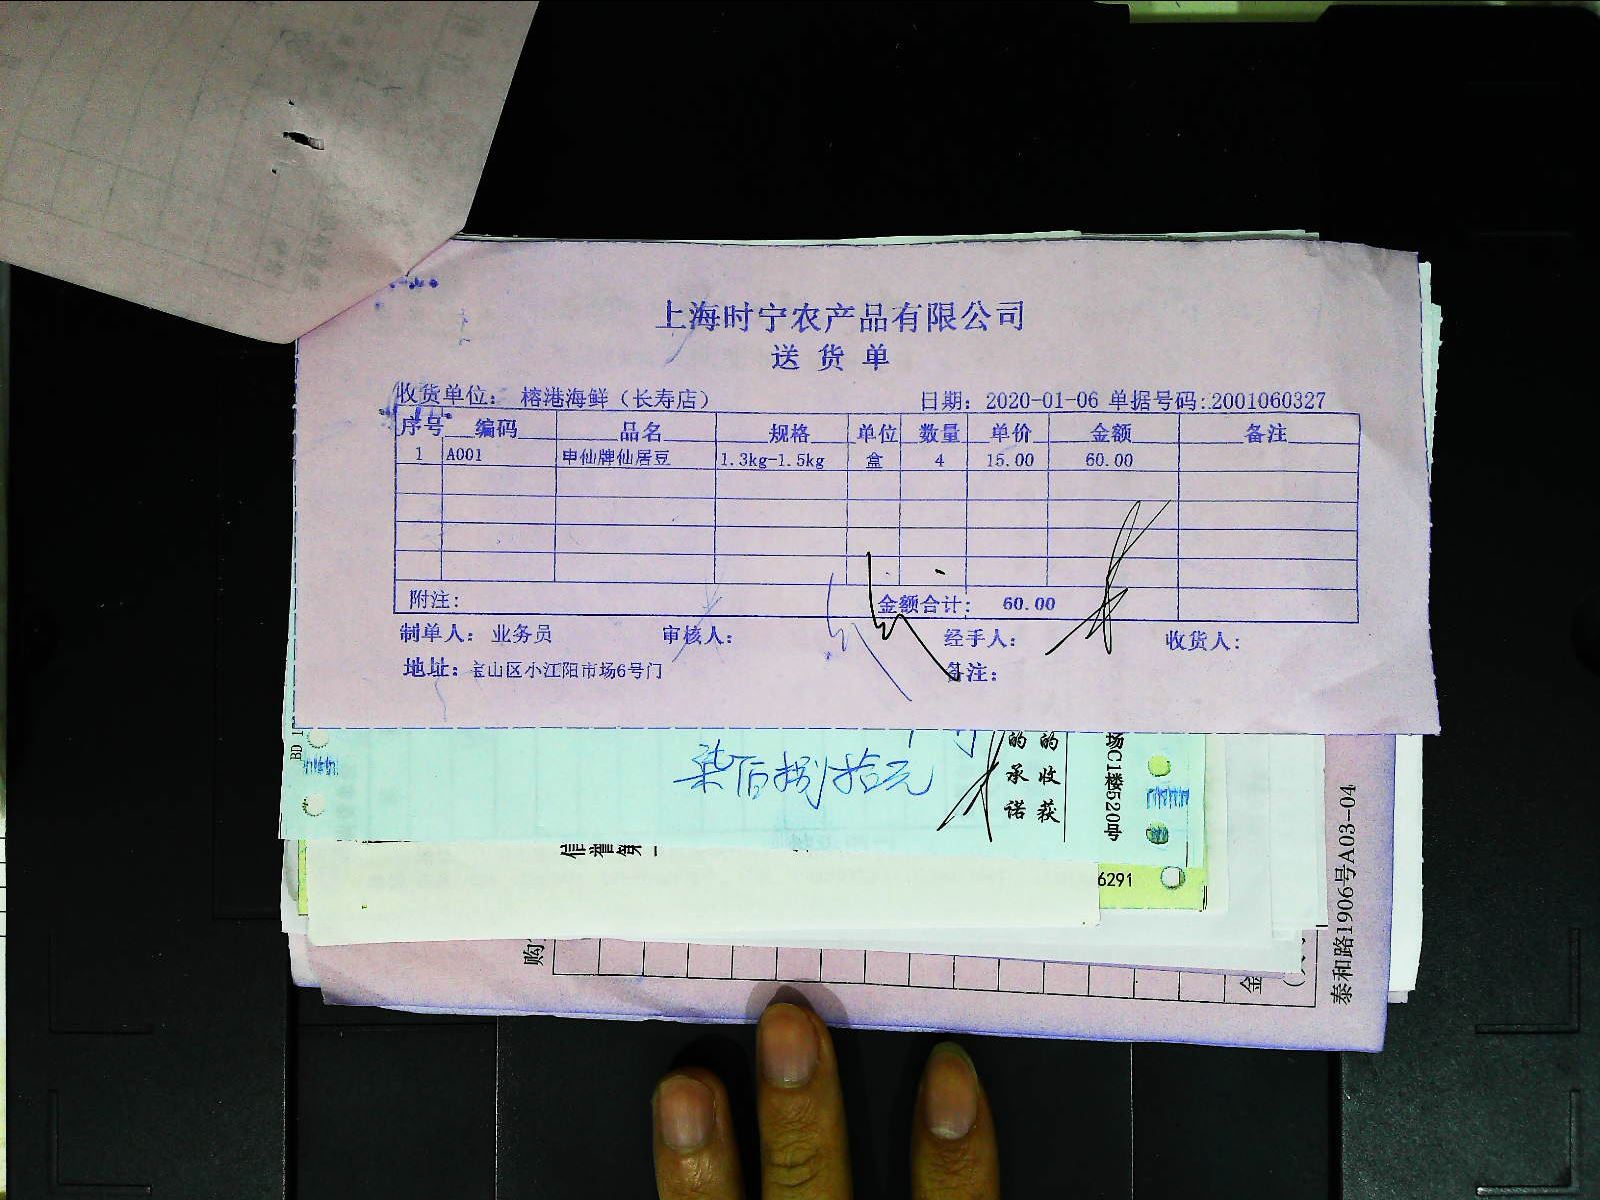 上海时宁农产品有限公司
送货单
收货单位： 榕港海鲜（长寿店） 日期：2020-01-06 单据号码:2001060327
序号 编码 品名 规格 单位 数量 单价 金额 备注
1 A001 申仙牌仙居豆 1.3kg-1.5kg 盒 4 15.00 60.00
附注： 金额合计： 60.00
制单人： 业务员 审核人： 经手人： 收货人：
地址：宝山区小江阳市场6号门 备注：
柒佰捌拾元
的收获
的承诺
场C1楼520号
信誉第一
6291
购
金
泰和路1906号A03-04